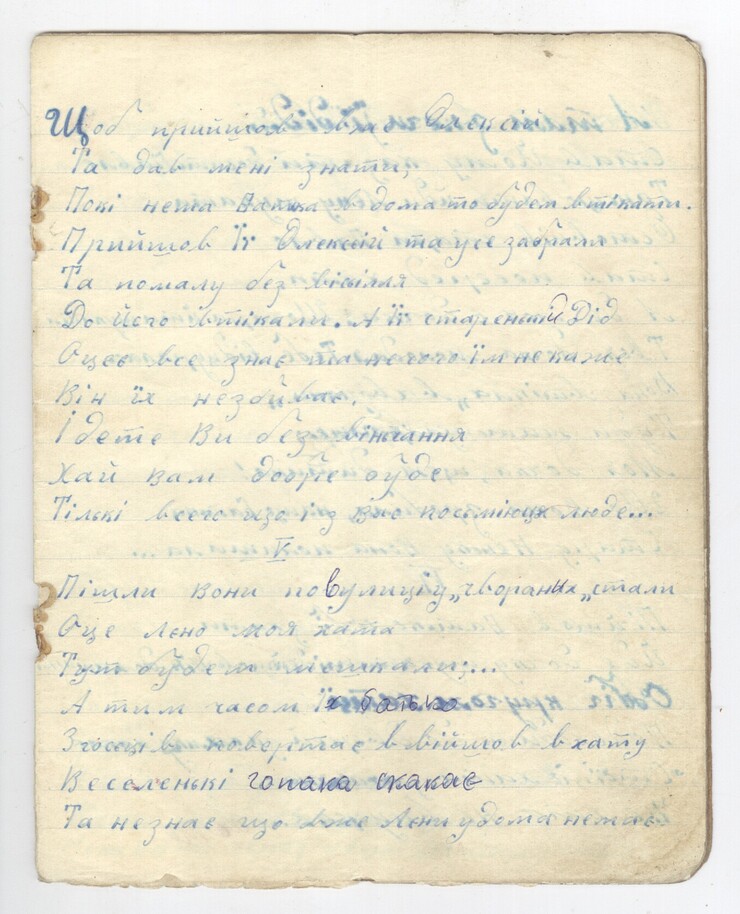 Щоб прийшов Олексій
Та дав мені знати,
Покі нема Батька вдома то будем втікати.
Прийшов Їх Олексій та усе забрали
Та помалу без висілля
До Його втікали. А Їх старенький Дід
Оцеє все знає та нечого їм некаже
Він їх незбиває.
Ідете Ви без вінчання
Хай вам добре буде
Тількі всего що із вас посміюця люде...
V
Пішли вони повулицју „чвораних„ стали
Оце Лєно моя хата
Тут будем мешкали;...
А тим часом Їх батько
Згосців повертає ввійшов вхату
Веселенькі гопака скакає
Та незнає що вже Лєни удома немає.